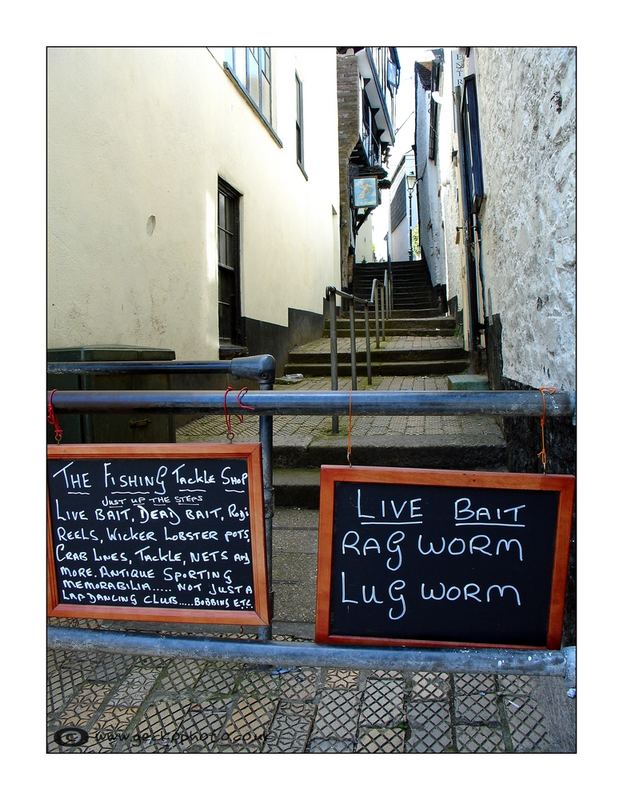 ENTR
THE FISHING Tackle SHOP
JUST UP THE STEPS
LIVE BAIT, DEAD BAIT, Rods
REELS, WICKER LOBSTER POTS,
CRAB LINES, TACKLE, NETS AND
MORE. ANTIQUE SPORTING
MEMORABILIA..... NOT JUST A
LAP DANCING CLUB.....BOBBINS ETC.
LIVE BAIT
RAG WORM
LUG WORM
www.geckophoto.co.uk